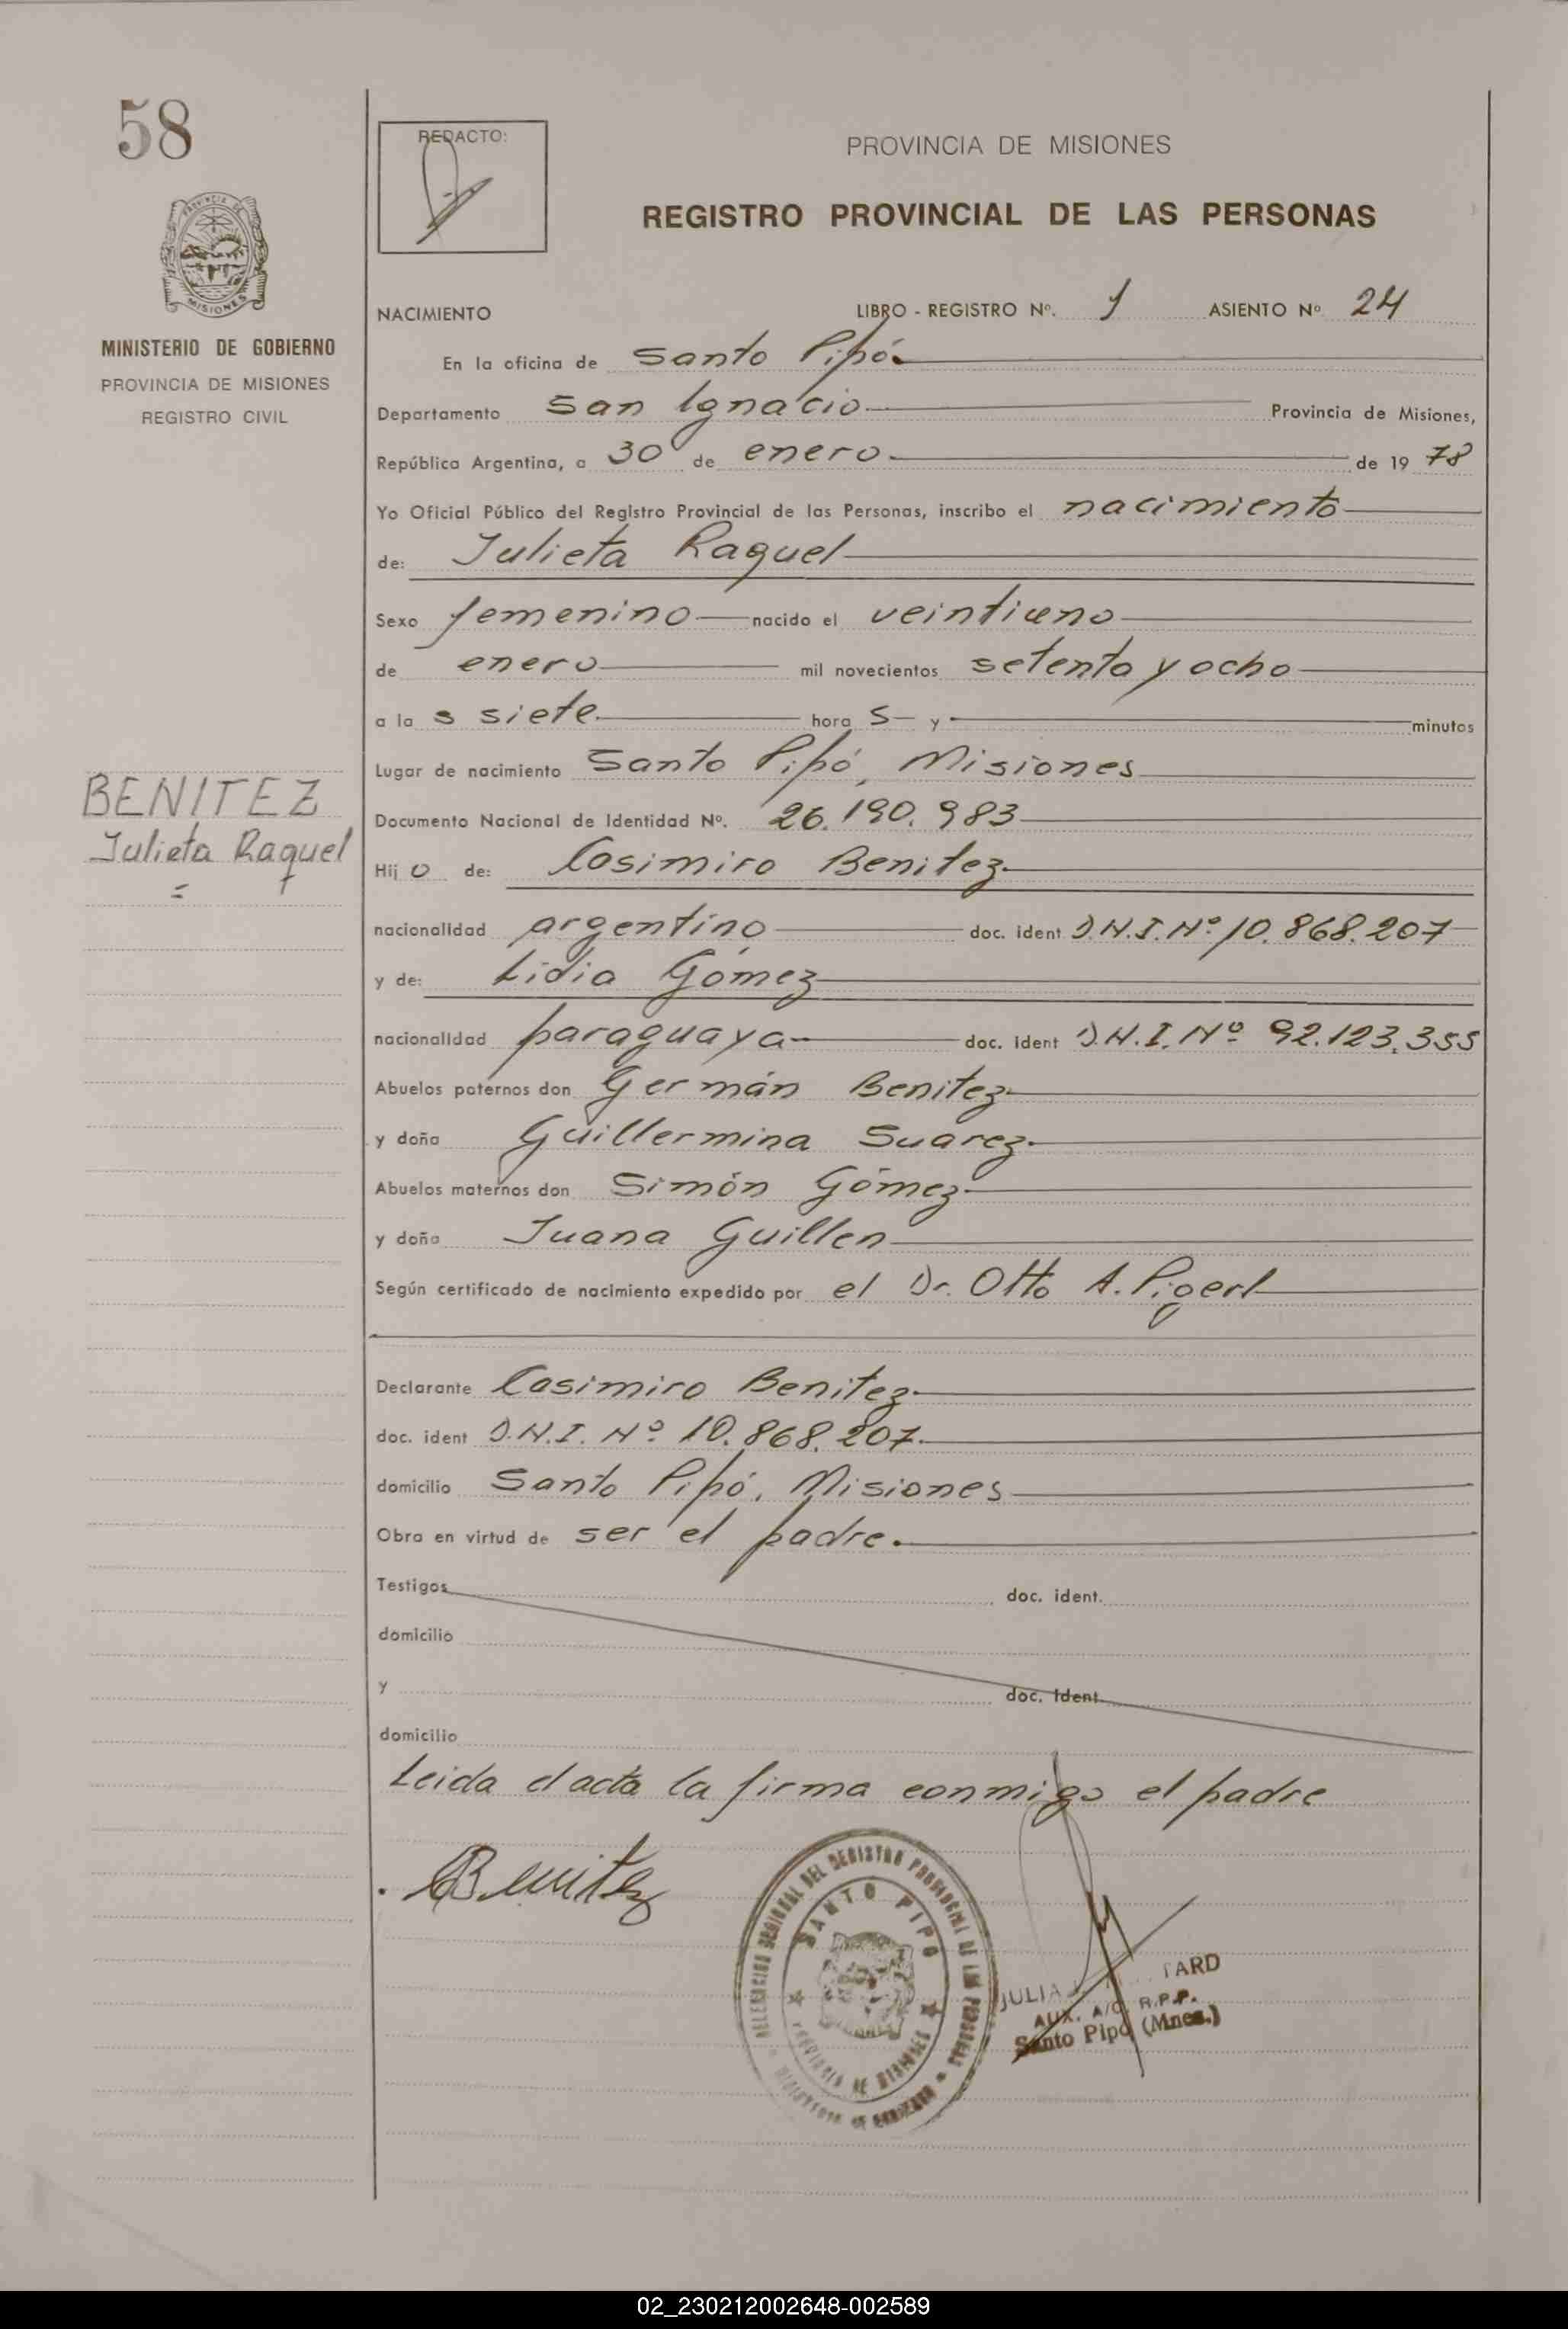 58
REDACTO:
PROVINCIA DE MISIONES
REGISTRO PROVINCIAL DE LAS PERSONAS
MISIONES
MINISTERIO DE GOBIERNO
PROVINCIA DE MISIONES
REGISTRO CIVIL
NACIMIENTO LIBRO - REGISTRO Nº. 1 ASIENTO Nº 24
En la oficina de Santo Pipó
Departamento San Ignacio Provincia de Misiones,
República Argentina, a 30 de enero de 19 78
Yo Oficial Público del Registro Provincial de las Personas, inscribo el nacimiento
de: Julieta Raquel
Sexo femenino nacido el veintiuno
de enero mil novecientos setenta y ocho
a la s siete hora s y minutos
Lugar de nacimiento Santo Pipó, Misiones
BENITEZ
Julieta Raquel
Documento Nacional de Identidad Nº. 26.190.983
Hij o de: Casimiro Benitez
nacionalidad argentino doc. ident D.N.I. Nº 10.868.207
y de: Lidia Gómez
nacionalidad paraguaya doc. ident D.N.I. Nº 92.123.355
Abuelos paternos don Germán Benitez
y doña Guillermina Suarez
Abuelos maternos don Simón Gómez
y doña Juana Guillen
Según certificado de nacimiento expedido por el Dr. Otto A. Pigerl
Declarante Casimiro Benitez
doc. ident D.N.I. Nº 10.868.207
domicilio Santo Pipó, Misiones
Obra en virtud de ser el padre.
Testigos doc. ident.
domicilio
y doc. ident
domicilio
Leida el acta la firma conmigo el padre
CBenitez
DELEGACION SECCIONAL DEL REGISTRO PROVINCIAL DE LAS PERSONAS
MINISTERIO DE GOBIERNO
SANTO PIPO
PROVINCIA DE MISIONES
JULIA TARD
AUX. A/C. R.P.P.
Santo Pipó (Mnes.)
02_230212002648-002589